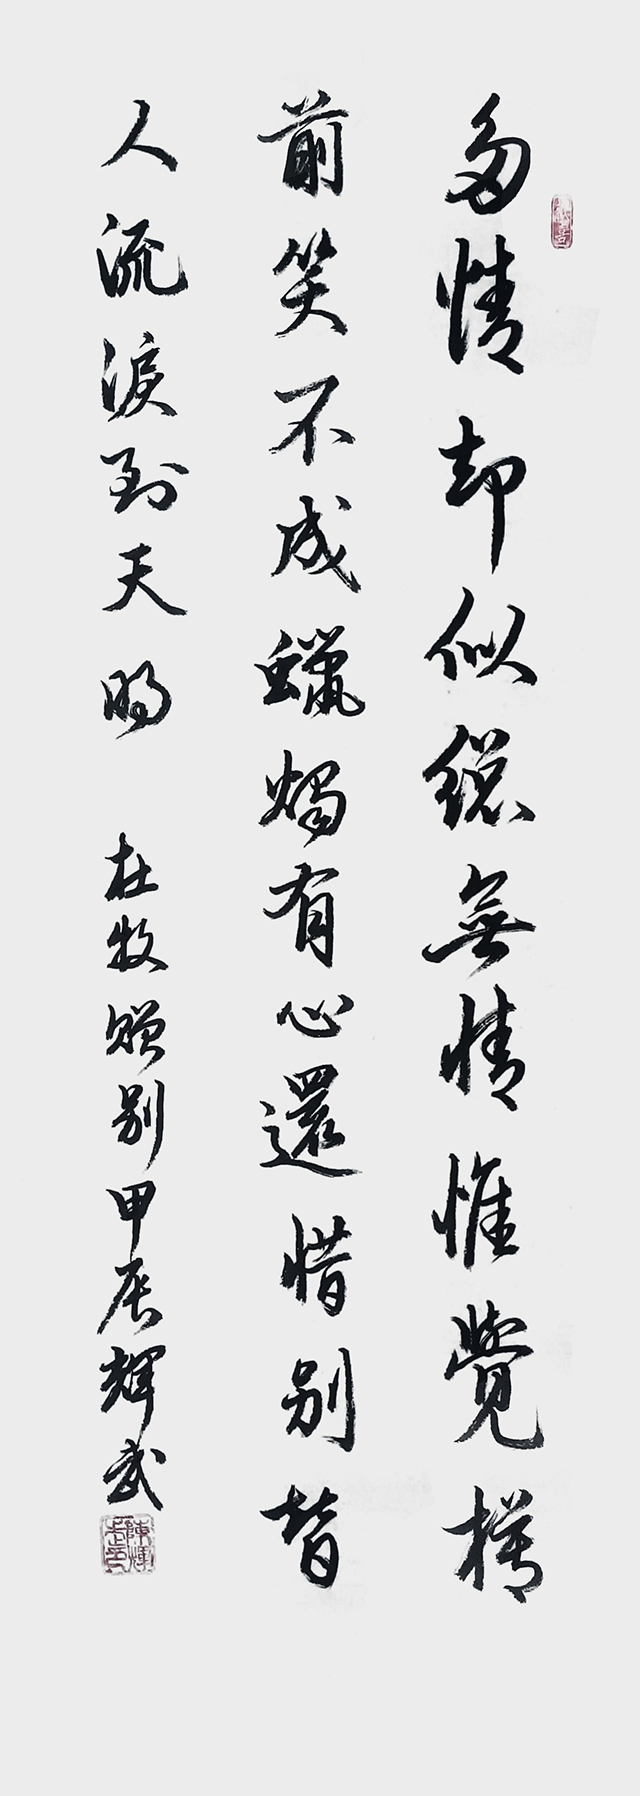 多情却似總無情惟覺樽
前笑不成蠟燭有心還惜别替
人流淚到天明 杜牧贈别甲辰輝武
陳輝武印